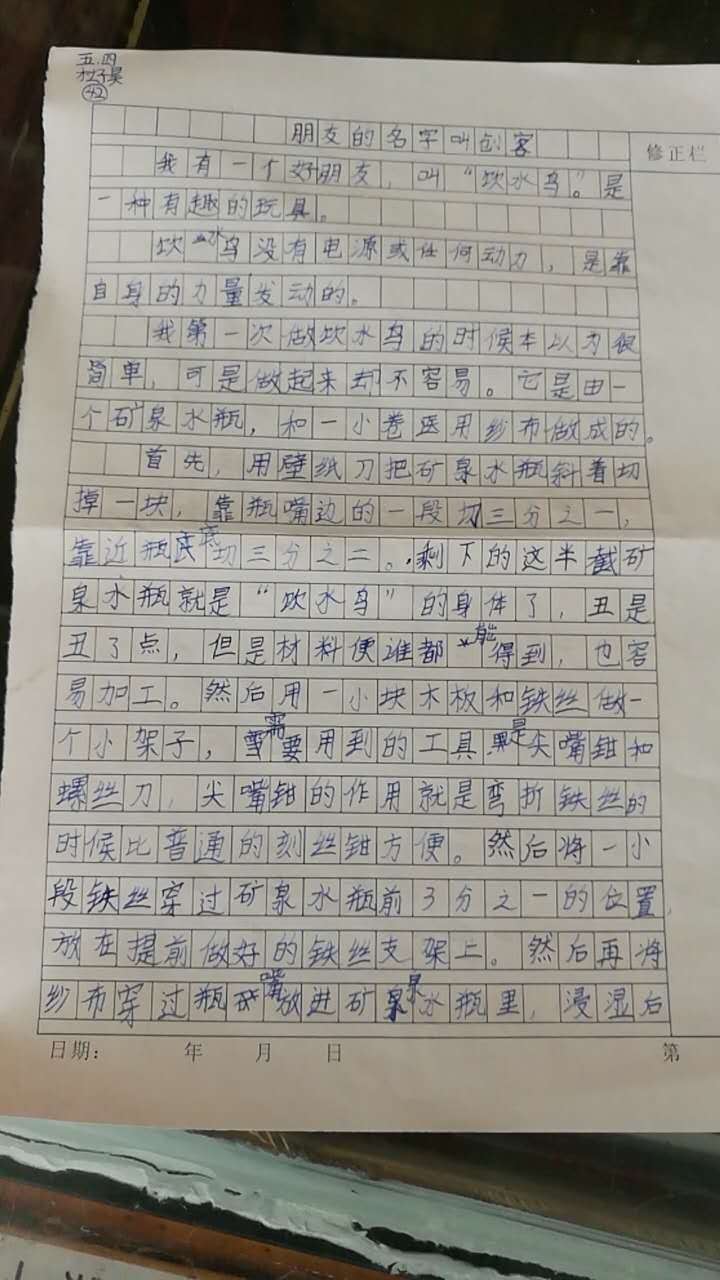 五.四
杜子昊
42
朋友的名字叫创客
修正栏
我有一个好朋友，叫“饮水鸟”。是
一种有趣的玩具。
饮水鸟没有电源或任何动力，是靠
自身的力量发动的。
我第一次做饮水鸟的时候本以为很
简单，可是做起来却不容易。它是由一
个矿泉水瓶，和一小卷医用纱布做成的。
首先，用壁纸刀把矿泉水瓶斜着切
掉一块，靠瓶嘴边的一段切三分之一，
靠近瓶底切三分之二。剩下的这半截矿
泉水瓶就是“饮水鸟”的身体了，丑是
丑了点，但是材料便谁都能得到，也容
易加工。然后用一小块木板和铁丝做一
个小架子，需要用到的工具是尖嘴钳和
螺丝刀，尖嘴钳的作用就是弯折铁丝的
时候比普通的刻丝钳方便。然后将一小
段铁丝穿过矿泉水瓶前3分之一的位置，
放在提前做好的铁丝支架上。然后再将
纱布穿过瓶嘴放进矿泉水瓶里，浸湿后
日期： 年 月 日 第